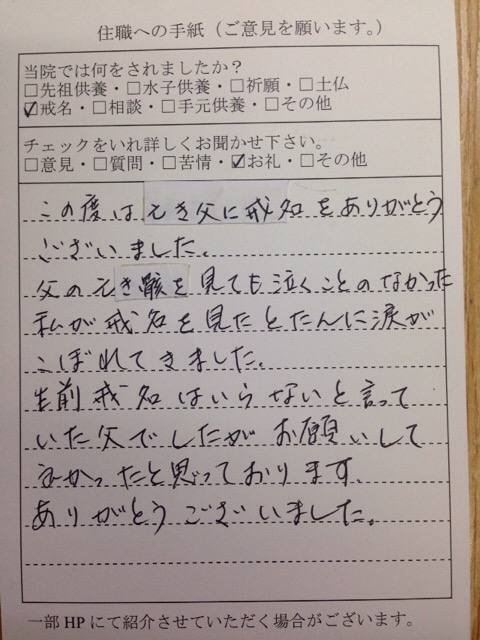 住職への手紙（ご意見を願います。）
当院では何をされましたか？
□先祖供養・□水子供養・□祈願・□土仏
☑戒名・□相談・□手元供養・□その他
チェックをいれ詳しくお聞かせ下さい。
□意見・□質問・□苦情・☑お礼・□その他
この度は亡き父に戒名をありがとう
ございました。
父の亡き骸を見ても泣くことのなかった
私が戒名を見たとたんに涙が
こぼれてきました。
生前戒名はいらないと言って
いた父でしたがお願いして
よかったと思っております。
ありがとうございました。
一部HPにて紹介させていただく場合がございます。